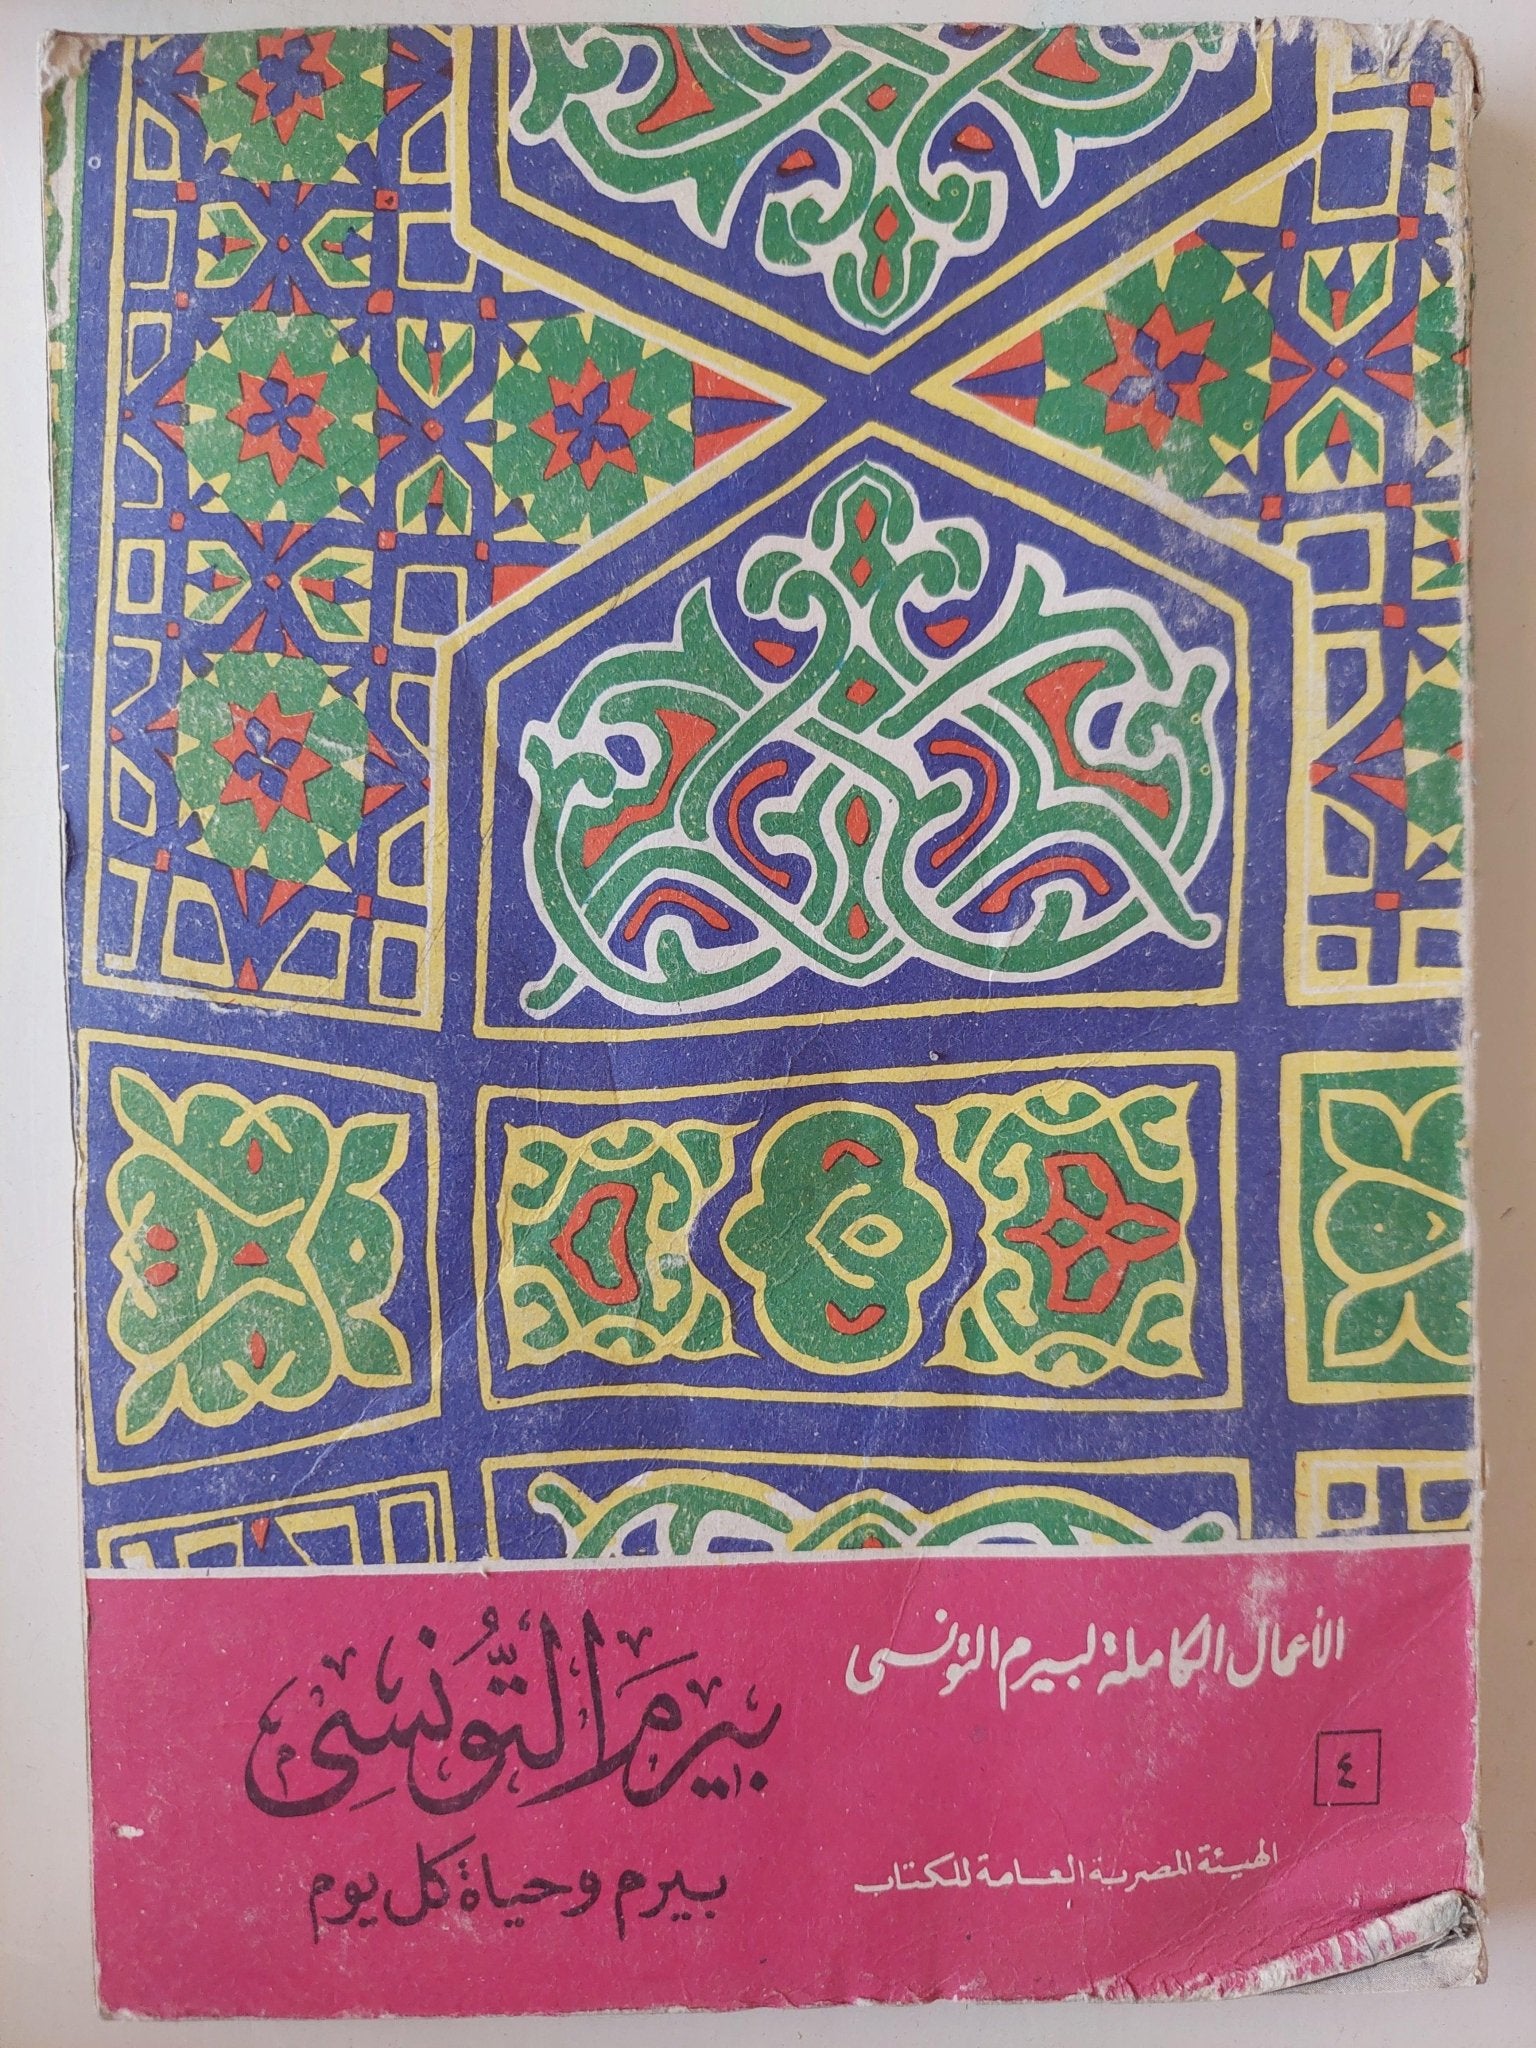 الأعمال الكاملة لبيرم التونسى
٤
الهيئة المصرية العامة للكتاب
بيرم التونسى
بيرم وحياة كل يوم